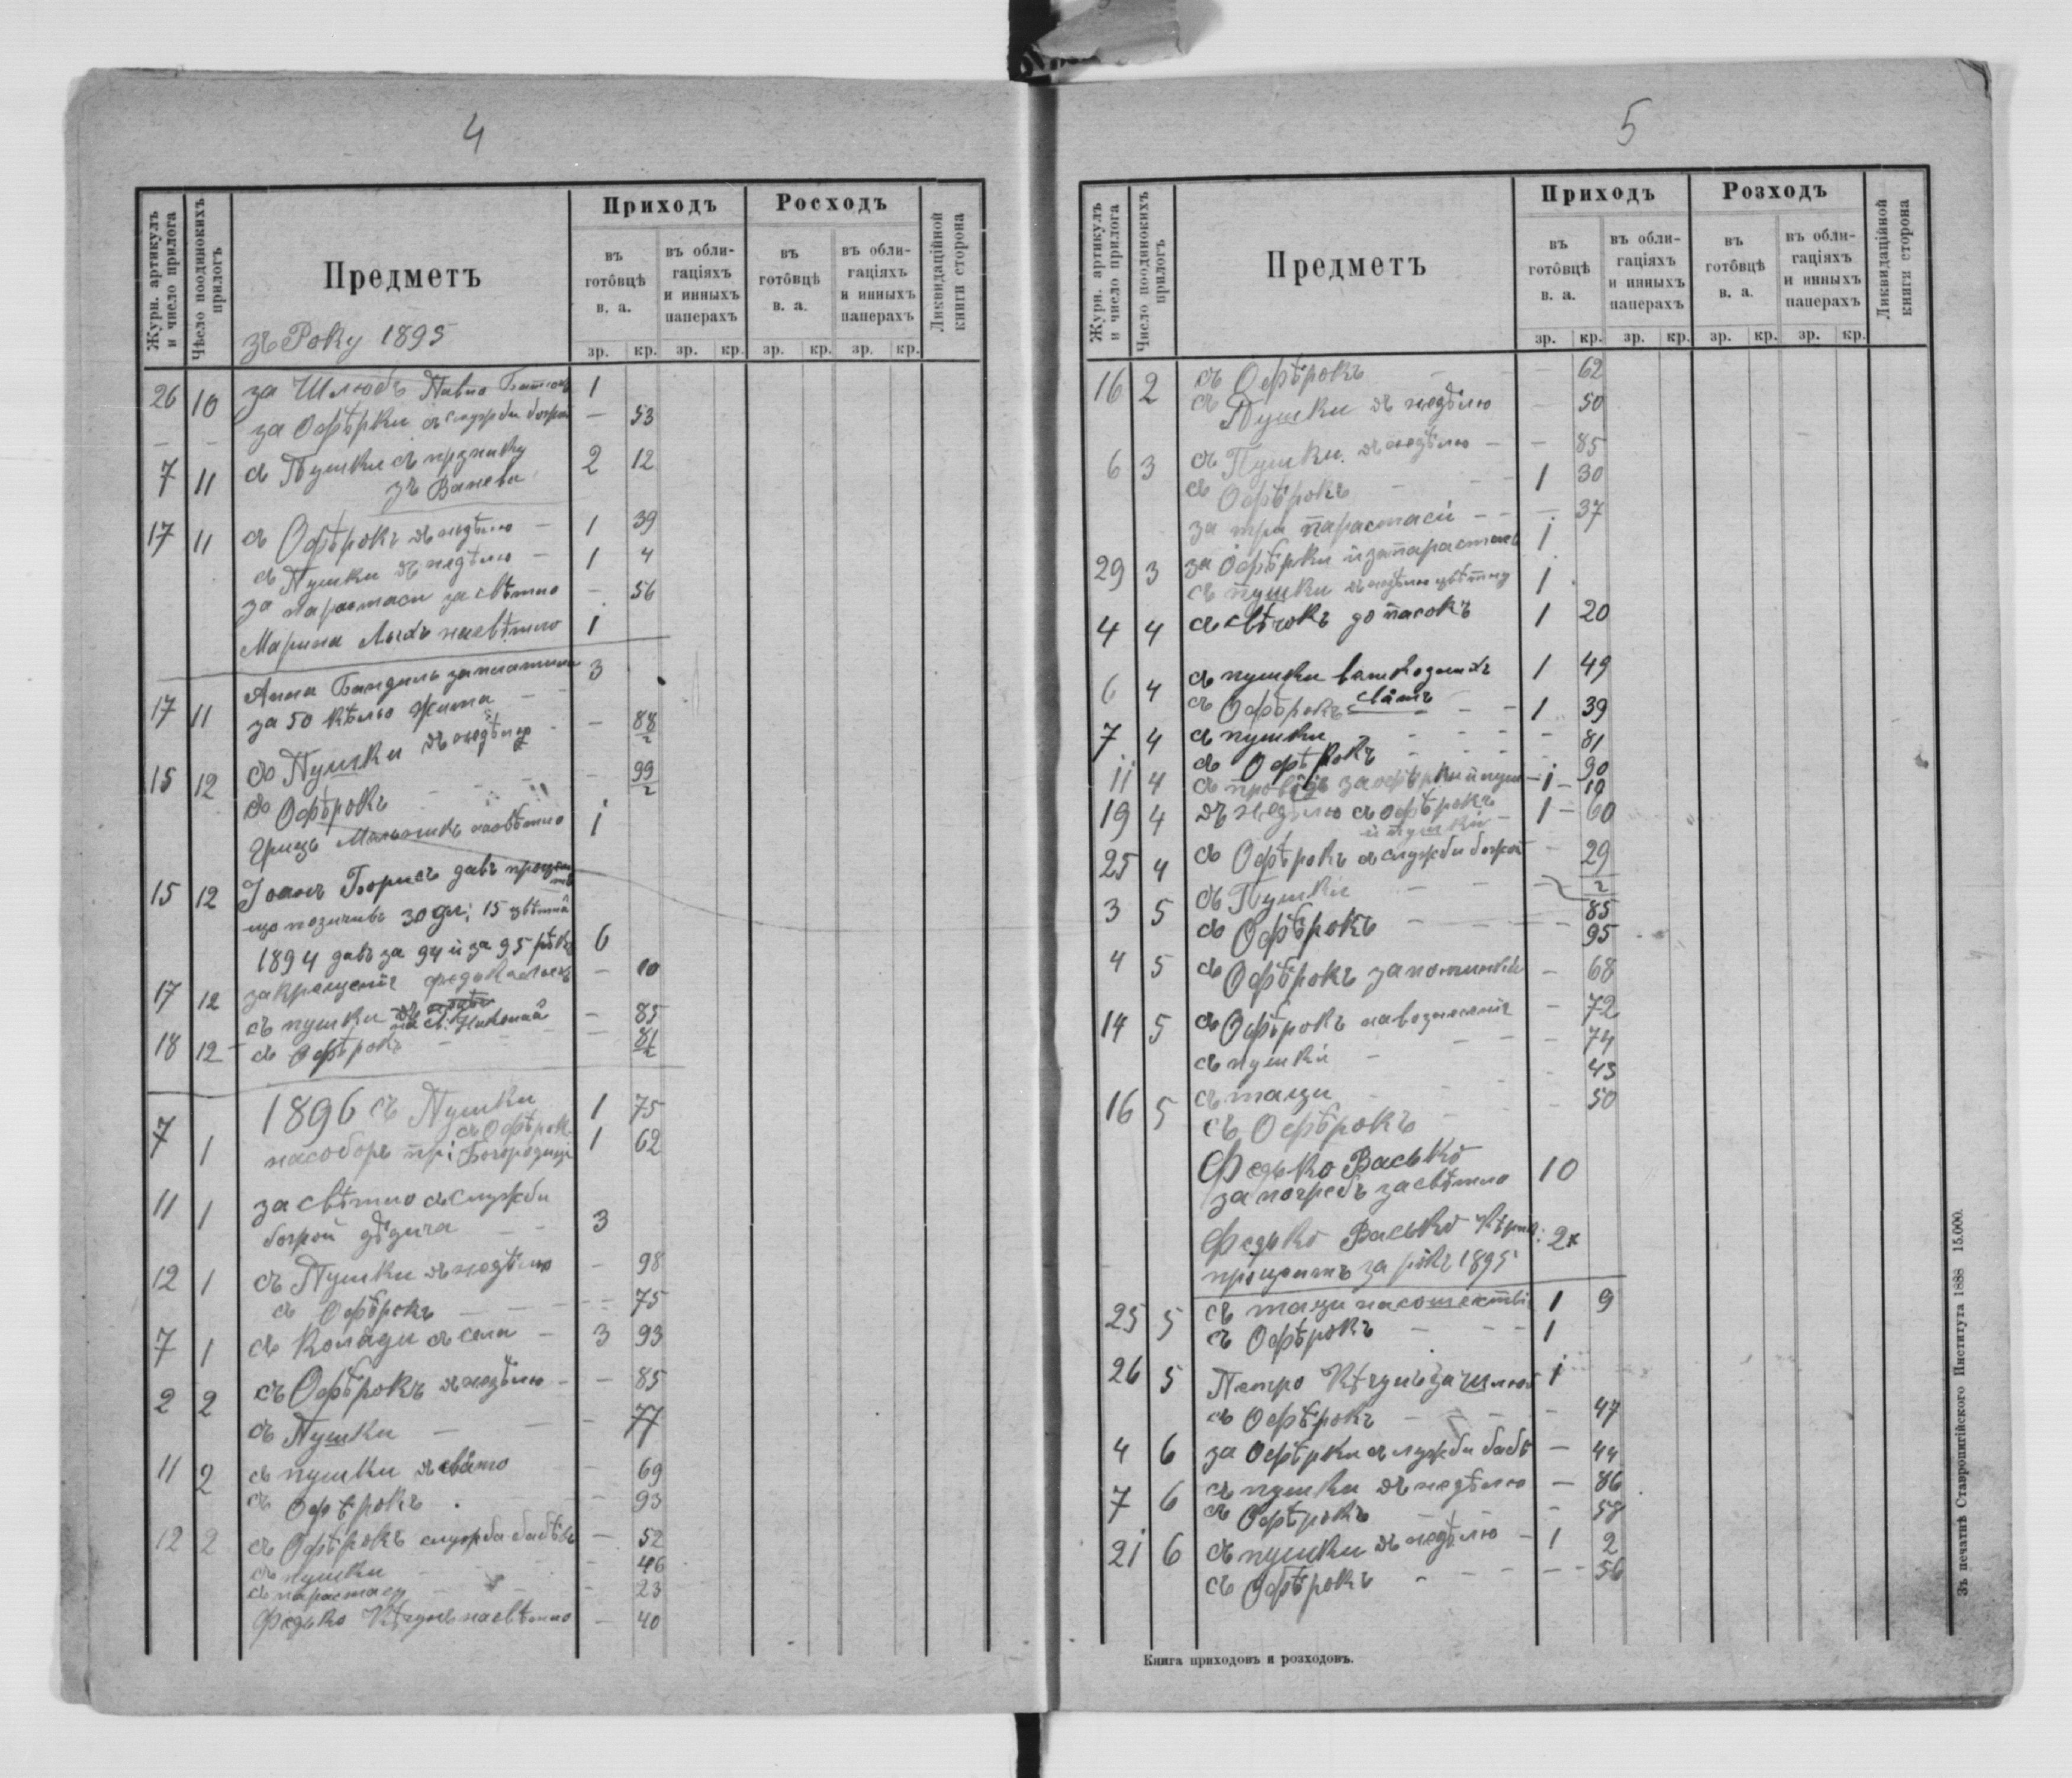 4
Журн. артикулъ и число прилога
Чѣсло поодинокихъ прилогъ
Предметъ
зъ Року 1895
Приходъ
Росходъ
въ готôвцѣ в. а.
въ облигаціяхъ и инныхъ паперахъ
въ готôвцѣ в. а.
въ облигаціяхъ и инныхъ паперахъ
Ликвидаційной книги сторона
зр. кр. зр. кр. зр. кр. зр. кр.
26 10 за Шлюбъ Павло 1
— — за Офѣрки съ служби — 53
7 11 съ Пушки съ празнику 2 12
зъ Ванева
17 11 съ Офѣрокъ въ недѣлю — 1 39
съ Пушки въ недѣлю — 1 4
за парастаси за свѣтло — 56
Марина на свѣтло 1
Анна заплатила 3
17 11 за 50 Жита — —
съ Пушки въ недѣлю — — 88/2
15 12 съ Офѣрокъ — — — 99/2
Грицъ на свѣтло 1
15 12 Іоанъ Борисъ давъ процентъ
що позичивъ 30 15
1894 давъ за 94 и за 95 рôкъ 6
17 12 за крещеніе — 10
съ пушки на с. Николай — 85
18 12 — съ Офѣрокъ — — 81/2
1896 съ Пушки 1 75
7 1 съ Офѣрок 1 62
на соборъ прі Богородици
11 1 за свѣтло съ служби
божой 3
12 1 съ Пушки въ недѣлю — 98
съ Офѣрокъ — — — 75
7 1 съ Коляди съ села — 3 93
2 2 съ Офѣрокъ въ недѣлю — — 85
съ Пушки — — — 77
11 2 съ пушки въ свято — 69
съ Офѣрокъ — 93
12 2 съ Офѣрокъ служба — 52
съ пушки — — 46
съ парастасу — — 23
Федько на свѣтло — 40
5
Журн. артикулъ и число прилога
Число поодинокихъ прилогъ
Предметъ
Приходъ
Розходъ
въ готôвцѣ в. а.
въ облигаціяхъ и инныхъ паперахъ
въ готôвцѣ в. а.
въ облигаціяхъ и инныхъ паперахъ
Ликвидаційной книги сторона
зр. кр. зр. кр. зр. кр. зр. кр.
16 2 съ Офѣрокъ — — — 62
съ Пушки въ недѣлю — 50
6 3 съ Пушки въ недѣлю — — 85
съ Офѣрокъ — — — 1 30
за три парастаси — — — 37
29 3 за Офѣрки и за парастасъ 1
съ пушки въ недѣлю цвѣтну 1
4 4 съ свѣчокъ до пасокъ 1 20
6 4 съ пушки 1 49
съ Офѣрокъ святъ — — 1 39
7 4 съ пушки — — — — 81
съ Офѣрокъ — — — — 90
11 4 съ за офѣрки и — 1 — 19
19 4 въ недѣлю съ офѣрокъ 1 — 60
и пушки —
25 4 съ Офѣрокъ съ служби божой — 29/2
3 5 съ Пушки — — — 85
съ Офѣрокъ — — — 95
4 5 съ Офѣрокъ за — 68
14 5 съ Офѣрокъ — 72
съ пушки — — — — 74
16 5 съ таци — — — 43
съ Офѣрокъ — — 50
Федько Васько
за погребъ за свѣтло 10
Федько Васько 2х
процентъ за рôкъ 1895
25 5 съ таци 1 9
съ Офѣрокъ — — — 1
26 5 Петро за шлюб 1
съ Офѣрокъ — — — — 47
4 6 за Офѣрки съ служби — 44
7 6 съ пушки въ недѣлю — 86
съ Офѣрокъ — 58
21 6 съ пушки въ недѣлю — 1 2
съ Офѣрокъ — — — — 56
Книга приходовъ и розходовъ.
Зъ печатнѣ Ставропигійского Института 1888 15.000.